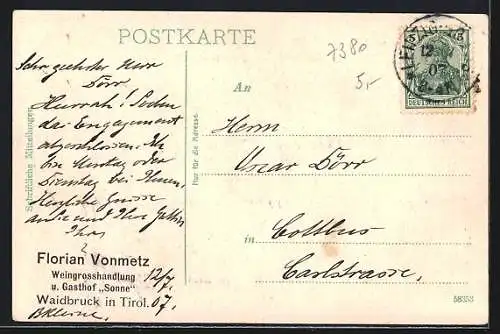 POSTKARTE
7380
5,-
LEIPZIG
12
07
DEUTSCHES REICH
Sehr geehrter Herr
Dörr
Hurrah! Soeben
das Engagement
abgeschlossen. Ich
bin Montag oder
Dienstag bei Ihnen.
Herzliche Grüsse
an Sie und Ihre Gattin
Ihr
Schriftliche Mitteilungen
Nur für die Adresse.
An
Herrn
Oscar Dörr
in Cottbus
Carlstrasse.
Florian Vonmetz
Weingrosshandlung
u. Gasthof „Sonne"
Waidbruck in Tirol.
12/7.
07.
58353